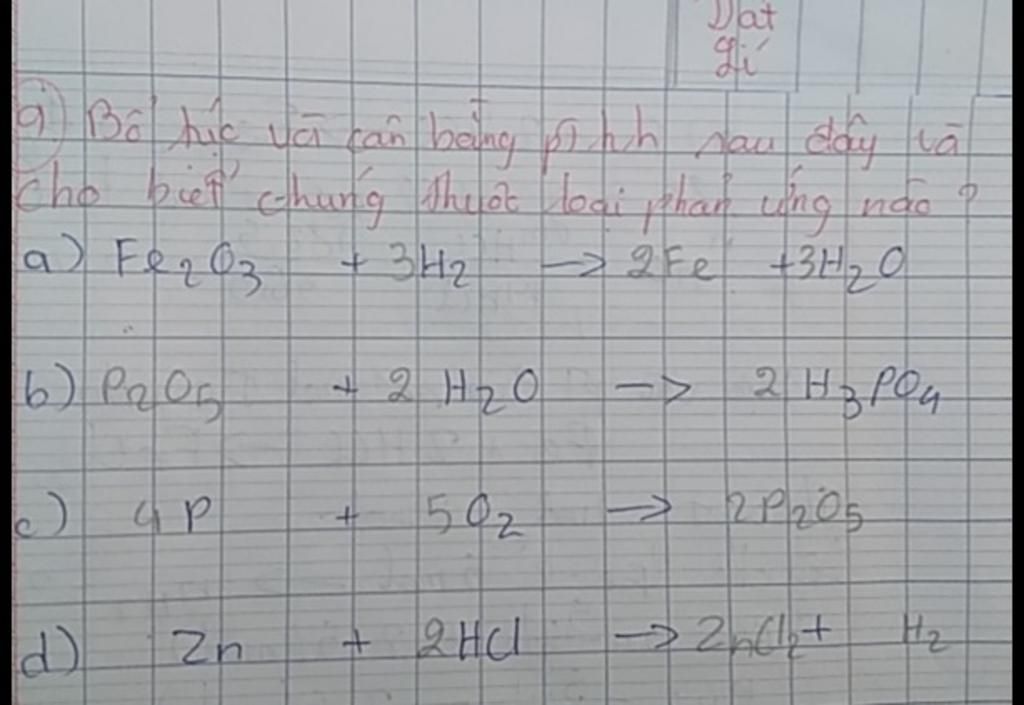 Đạt
gí
9) Bổ túc và cân bằng pthh sau đây và
cho biết chúng thuộc loại phản ứng nào?
a) Fe₂O₃ + 3H₂ -> 2Fe + 3H₂O
b) P₂O₅ + 2 H₂O -> 2 H₃PO₄
c) 4 P + 5O₂ -> 2P₂O₅
d) Zn + 2HCl -> ZnCl₂ + H₂